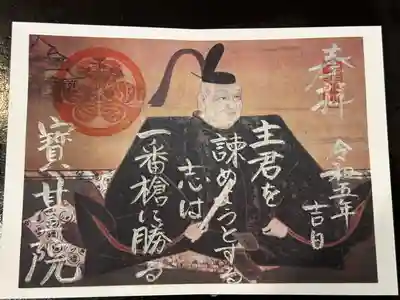 奉拝
令和五年
吉日
主君を
諫めようとする
志は
一番槍に勝る